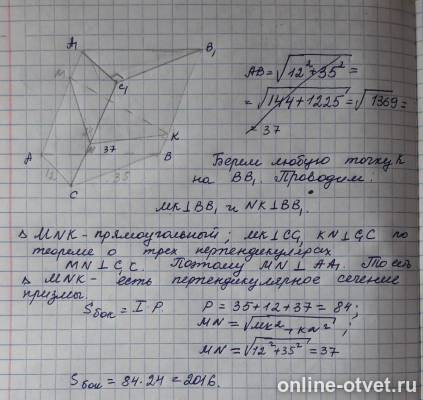 A₁
B₁
C₁
M
N
K
37
A
B
12
35
C
AB = √12² + 35² =
= √144 + 1225 = √1369 =
= 37
Берем любую точку K
на BB₁. Проводим:
MK ⊥ BB₁ и NK ⊥ BB₁.
△ MNK - прямоугольный; MK ⊥ CC₁, KN ⊥ C₁C по
теореме о трех перпендикулярах
MN ⊥ C₁C. Поэтому MN ⊥ AA₁. То есть
△ MNK - есть перпендикулярное сечение
призмы.
Sбок = l · P. P = 35 + 12 + 37 = 84;
MN = √MK² + KN²;
MN = √12² + 35² = 37
Sбок = 84 · 24 = 2016.
online-otvet.ru